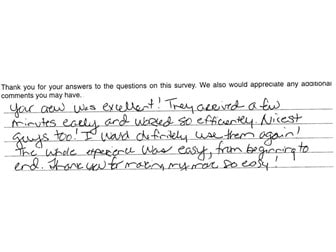 Thank you for your answers to the questions on this survey. We also would appreciate any additional
comments you may have.
Your crew was excellent! They arrived a few
minutes early and worked so efficiently. Nicest
guys too! I would definitely use them again!
The whole experience was easy, from beginning to
end. Thank you for making my move so easy!